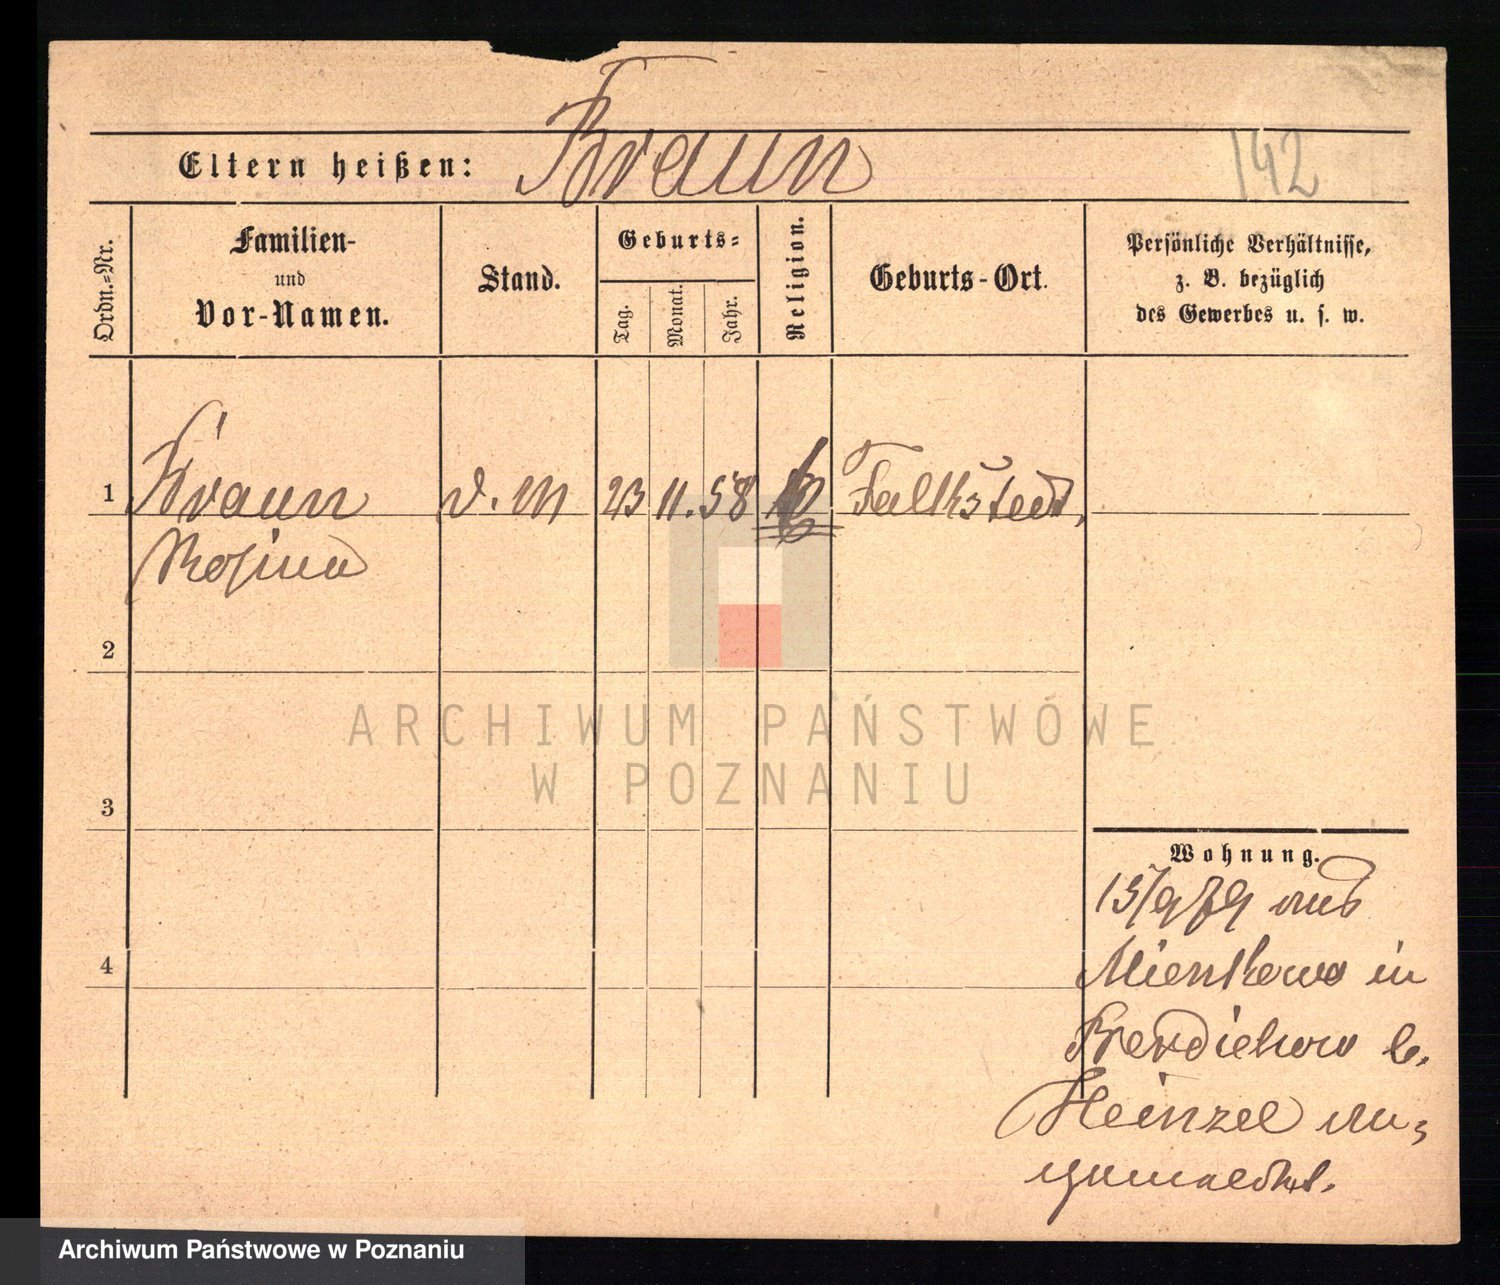 Eltern heißen: Braun
142
Ordn.-Nr.
Familien-
und
Vor-Namen.
Stand.
Geburts-
Tag.
Monat.
Jahr.
Religion.
Geburts-Ort.
Persönliche Verhältnisse,
z. B. bezüglich
des Gewerbes u. s. w.
1 Braun d. M 23 11. 58 Falkstedt,
Rosina
2
ARCHIWUM PAŃSTWOWE
W POZNANIU
3
4
Wohnung.
15/9 79 aus
in
Berdichow b.
Heinzel an-
gemeldet.
Archiwum Państwowe w Poznaniu